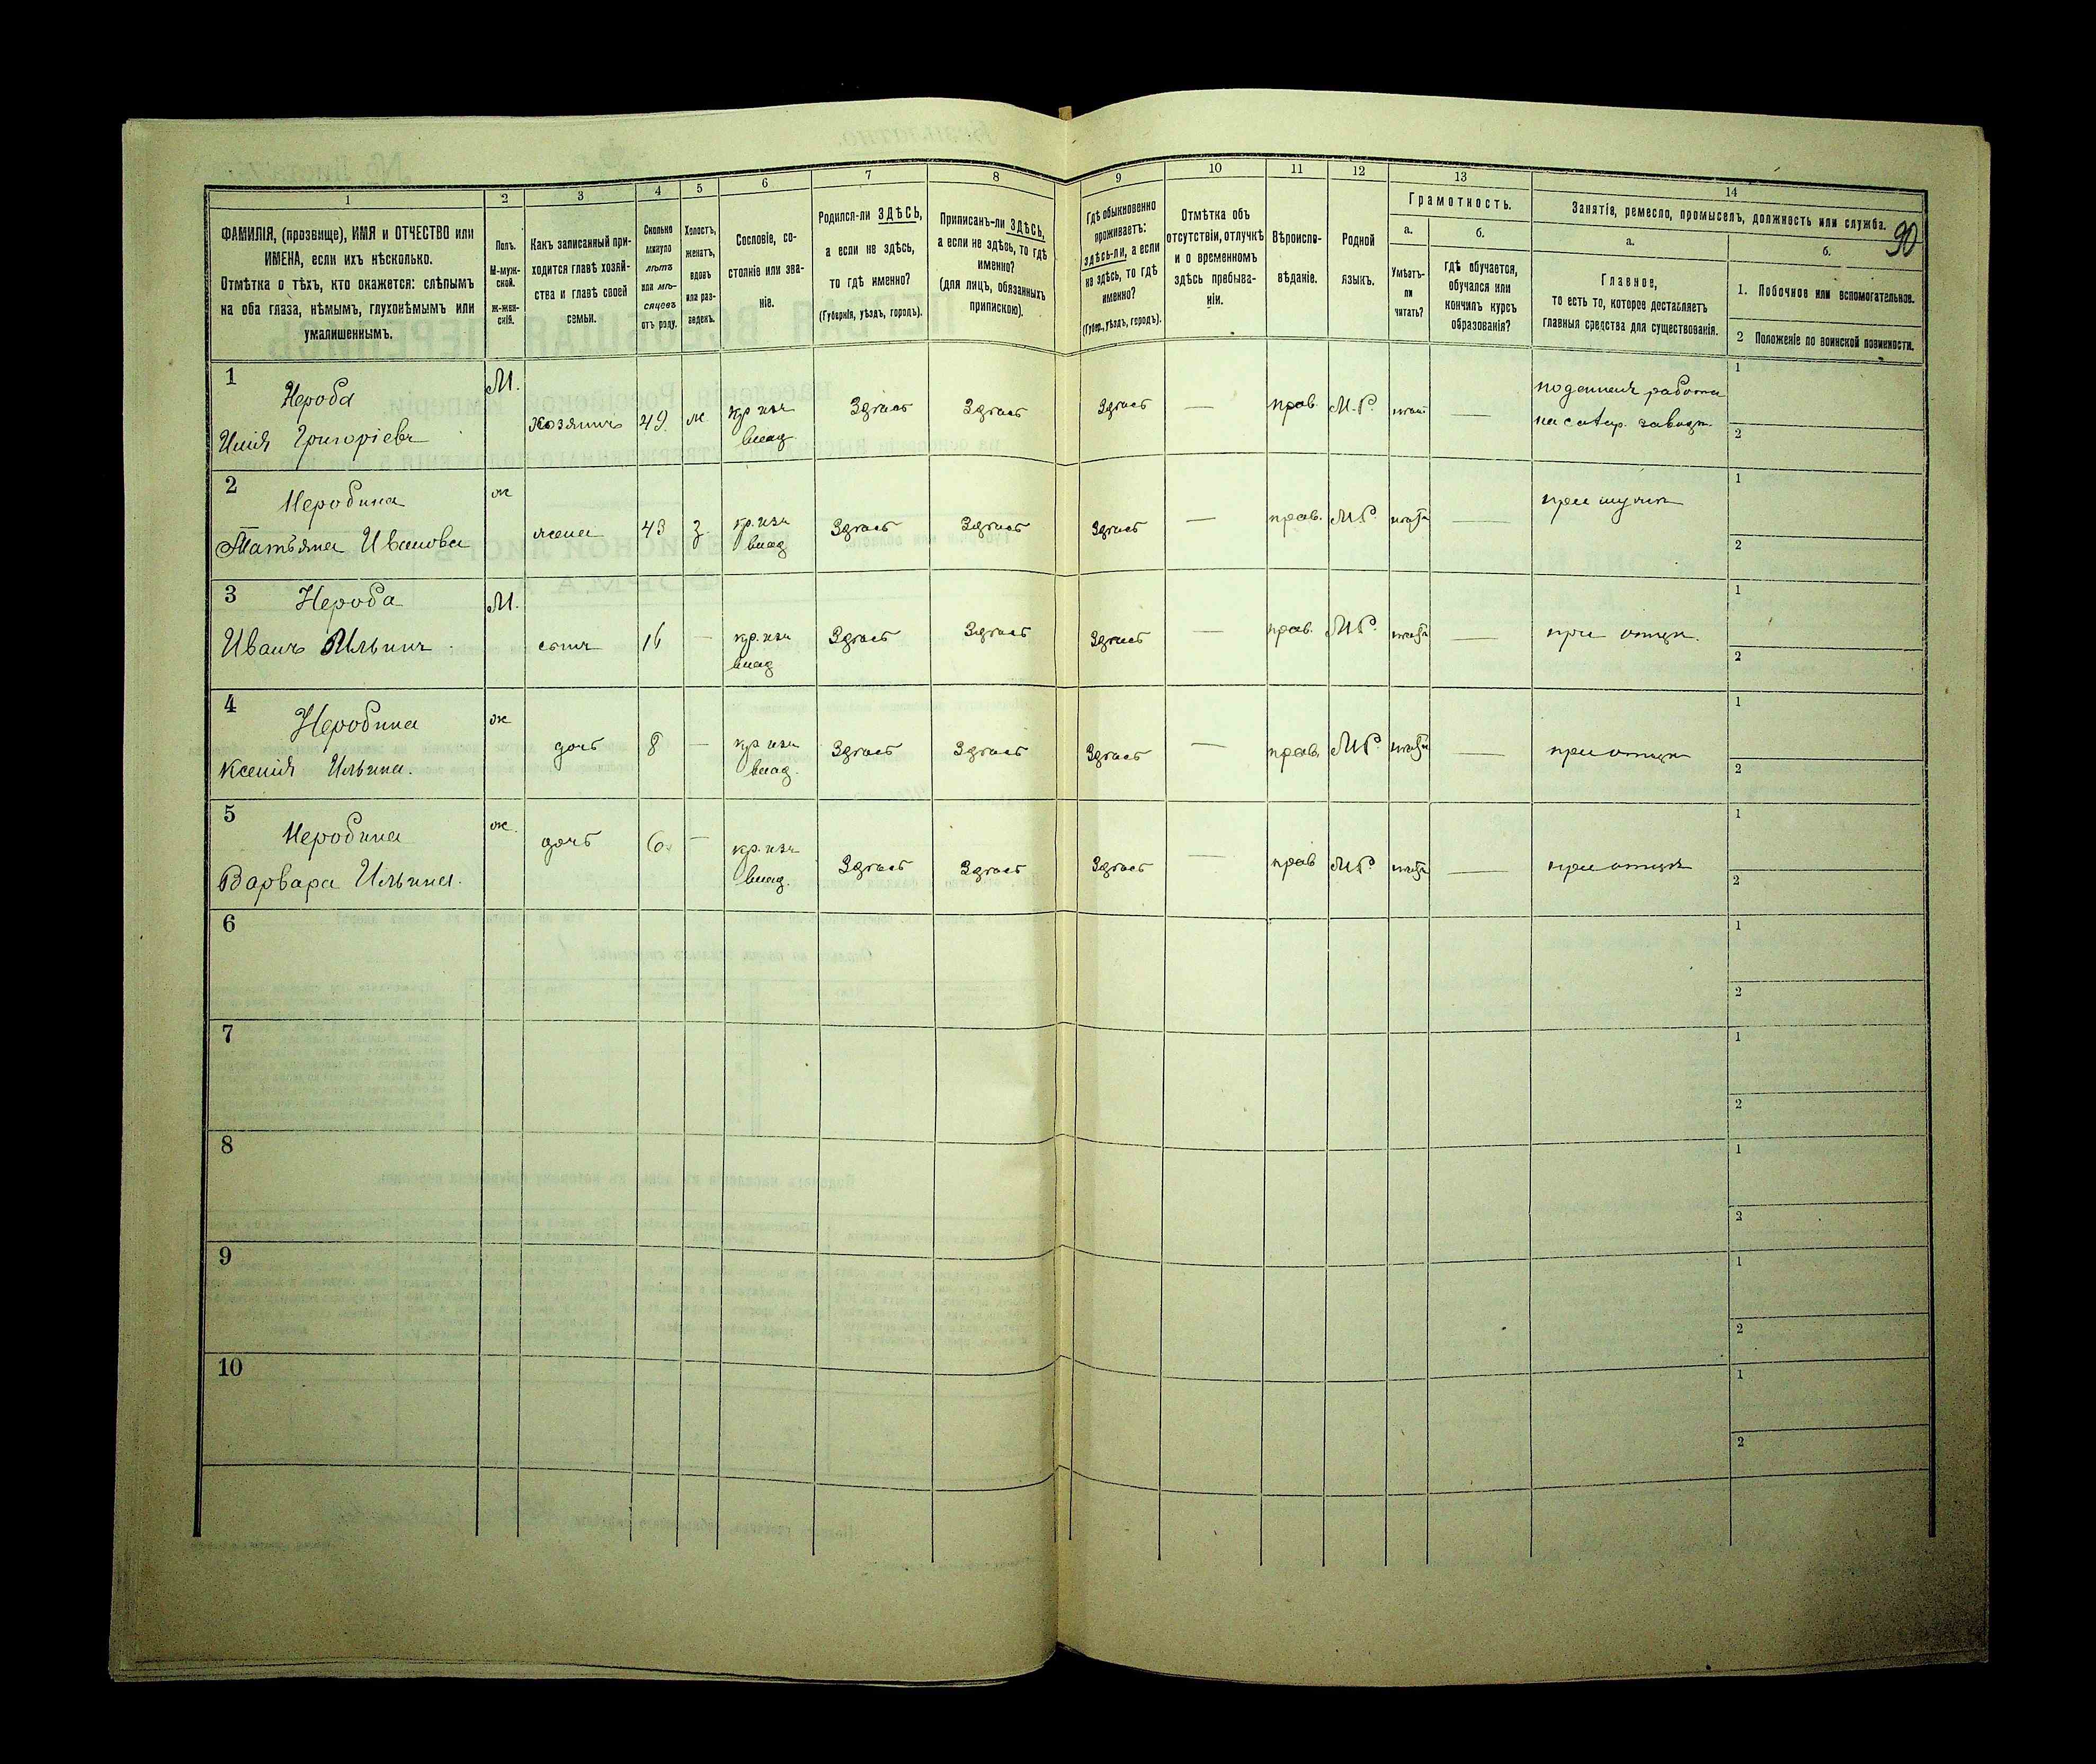 90
1 2 3 4 5 6 7 8 9 10 11 12 13 14
ФАМИЛІЯ, (прозвище), ИМЯ и ОТЧЕСТВО или
ИМЕНА, если ихъ нѣсколько.
Отмѣтка о тѣхъ, кто окажется: слѣпымъ
на оба глаза, нѣмымъ, глухонѣмымъ или
умалишеннымъ.
Полъ.
М-муж-
ской.
ж-жен-
скій.
Какъ записанный при-
ходится главѣ хозяй-
ства и главѣ своей
семьи.
Сколько
минуло
лѣтъ
или мѣ-
сяцевъ
отъ роду.
Холостъ,
женатъ,
вдовъ
или раз-
веденъ.
Сословіе, со-
стояніе или зва-
ніе.
Родился-ли ЗДѢСЬ,
а если не здѣсь,
то гдѣ именно?
(Губернія, уѣздъ, городъ).
Приписанъ-ли ЗДѢСЬ,
а если не здѣсь, то гдѣ
именно?
(для лицъ, обязанныхъ
припискою).
Гдѣ обыкновенно
проживаетъ:
здѣсь-ли, а если
не здѣсь, то гдѣ
именно?
(Губер., уѣздъ, городъ).
Отмѣтка объ
отсутствіи, отлучкѣ
и о временномъ
здѣсь пребыва-
ніи.
Вѣроиспо-
вѣданіе.
Родной
языкъ.
Грамотность.
а.
Умѣетъ-
ли
читать?
б.
гдѣ обучается,
обучался или
кончилъ курсъ
образованія?
Занятія, ремесло, промыселъ, должность или служба.
а.
Главное,
то есть то, которое доставляетъ
главныя средства для существованія.
б.
1. Побочное или вспомогательное.
2 Положеніе по воинской повинности.
1 Нероба М. 1
Илія Григоріевъ хозяинъ 49. ж. кр. изъ Здѣсь Здѣсь Здѣсь — прав. М.Р. — поденная работа
влад. на сахар. заводѣ. 2
2 Неробина ж 1
Татьяна Иванова жена 43 з. кр. изъ Здѣсь Здѣсь Здѣсь — прав. МР. — при мужѣ
влад 2
3 Нероба М. 1
Иванъ Ильинъ сынъ 16 — кр. изъ Здѣсь Здѣсь Здѣсь — прав. МР. — при отцѣ.
влад 2
4 Неробина ж 1
Ксенія Ильина. дочь 8 — кр изъ Здѣсь Здѣсь Здѣсь — прав. МР. — при отцѣ
влад. 2
5 Неробина ж. 1
Варвара Ильина. дочь 6. — кр. изъ Здѣсь Здѣсь Здѣсь — прав МР. — при отцѣ
влад. 2
6 1
2
7 1
2
8 1
2
9 1
2
10 1
2